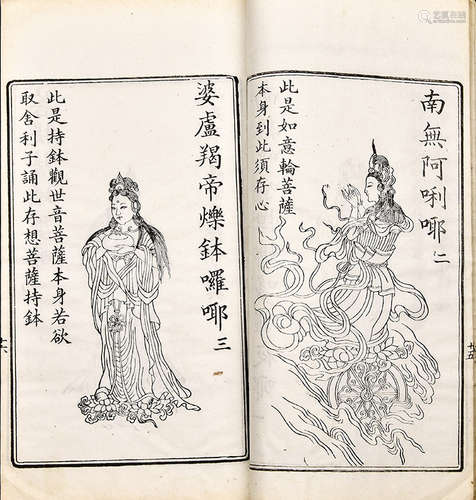 南無阿唎哪二
此是如意輪菩薩
本身到此須存心
十五
婆盧羯帝爍鉢囉哪三
此是持鉢觀世音菩薩本身若欲
取舍利子誦此存想菩薩持鉢
十六